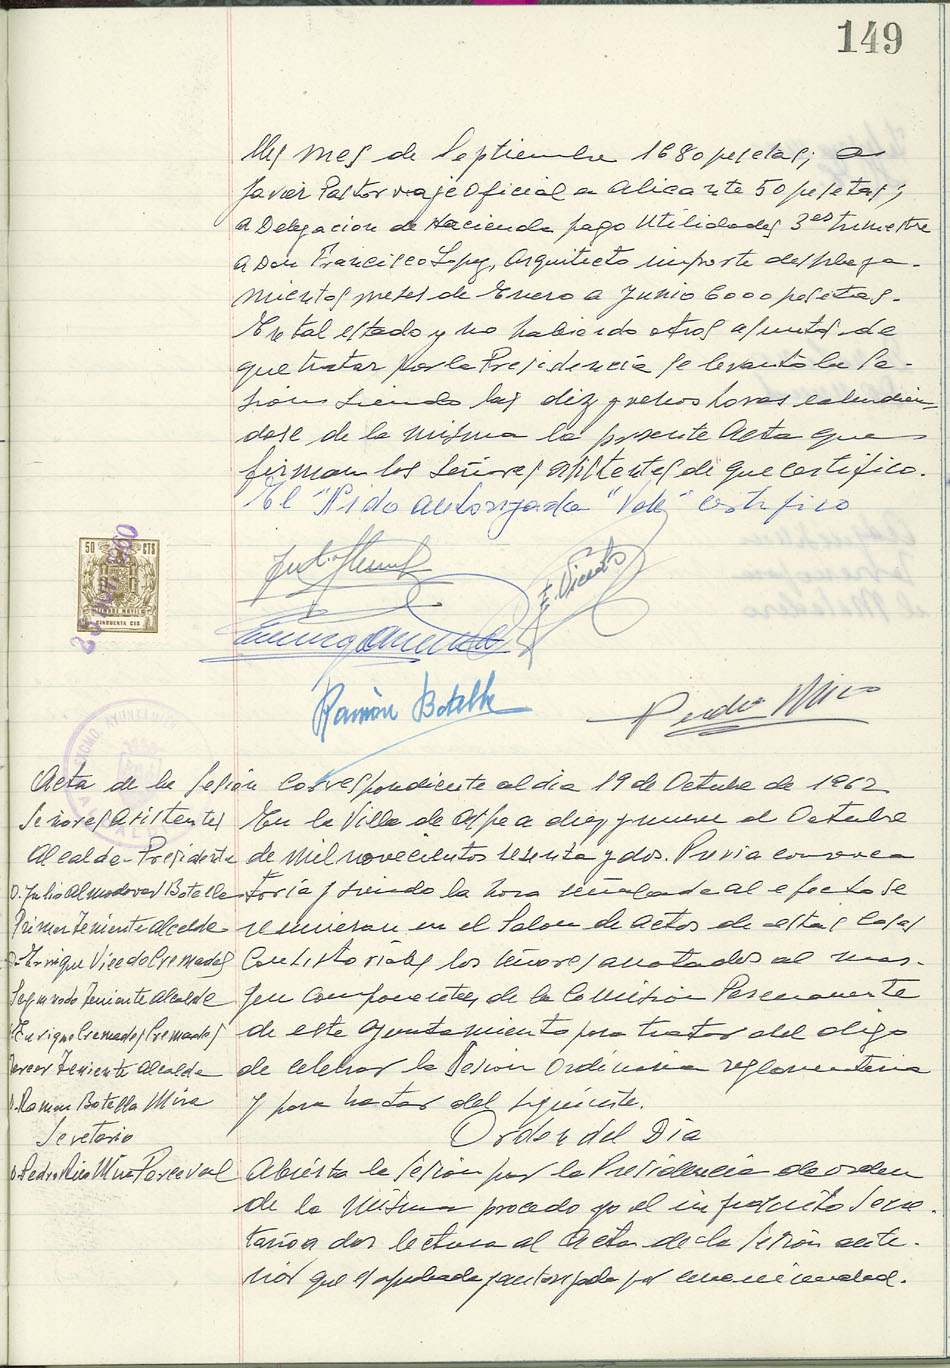 149
del mes de Septiembre 1680 pesetas; a
Javier Pastor viaje oficial a Alicante 50 pesetas;
a Delegacion de Hacienda pago Utilidades 3er trimestre
a Don Francisco Lopez, Arquitecto importe desplaza-
mientos meses de Enero a Junio 6000 pesetas.
En tal estado y no habiendo otros asuntos de
que tratar por la Presidencia se levantó la se-
sion siendo las diez y horas extendien-
dose de la misma la presente Acta que
firman los señores asistentes de que certifico.
El autorizada "Vale" certifico
50 CTS
TIMBRE MOVIL
CINCUENTA CTS
E. Vicedo
Ramón Botella
Pedro Miro
Acta de la Sesión correspondiente al dia 19 de Octubre de 1962
Señores Asistentes
Alcalde-Presidente
D. Julio Almodovar Botella
Primer Teniente Alcalde
D. Enrique Vicedo Cremades
Segundo Teniente Alcalde
D. Enrique Cremades Cremades
Tercer Teniente Alcalde
D. Ramon Botella Mira
Secretario
D. Pedro Mira Perceval
En la Villa de Aspe a diez y nueve de Octubre
de mil novecientos sesenta y dos. Previa convoca
toria y siendo la hora señalada al efecto se
reunieron en el Salon de actos de estas Casas
Consistoriales los señores anotados al mar-
gen componentes de la Comisión Permanente
de este Ayuntamiento para tratar del digo
de celebrar la Sesion Ordinaria reglamentaria
y para tratar del siguiente.
Orden del Dia
Abierta la sesión por la Presidencia de orden
de la misma procedo yo el infrascrito Secre-
tario a dar lectura al Acta de la sesión ante-
rior que es aprobada y autorizada por unanimidad.